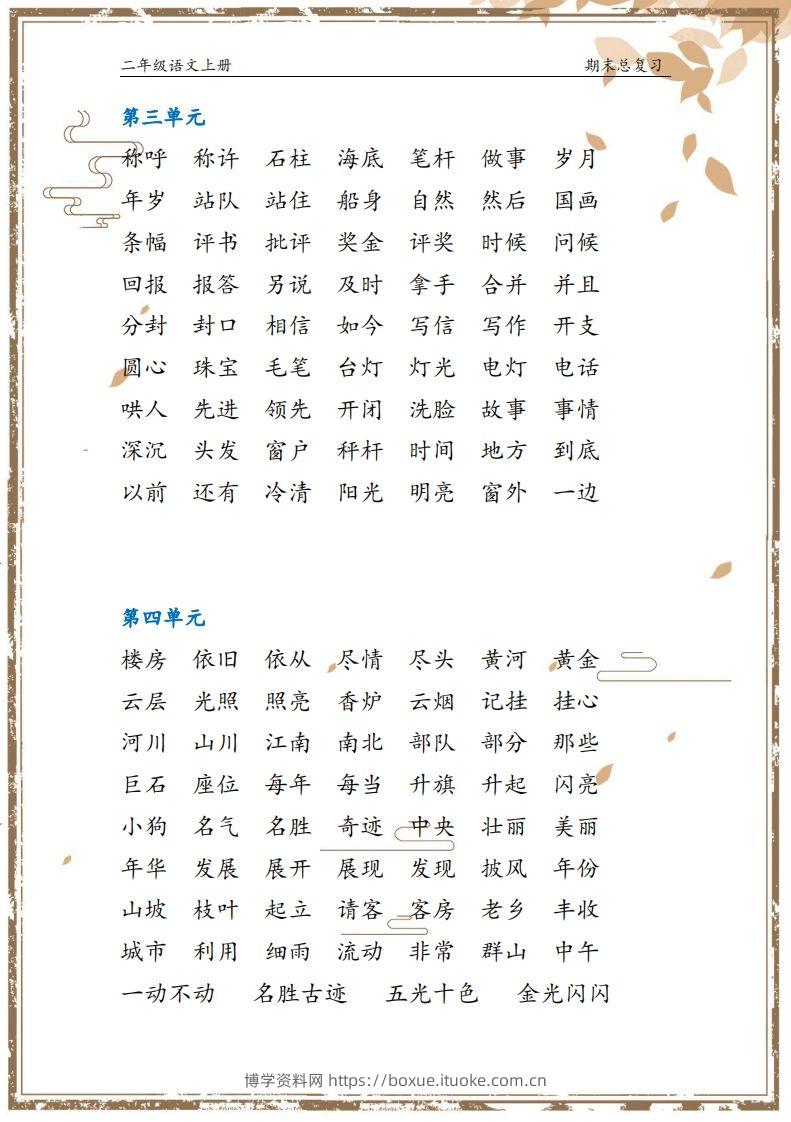 二年级语文上册 期末总复习
第三单元
称呼 称许 石柱 海底 笔杆 做事 岁月
年岁 站队 站住 船身 自然 然后 国画
条幅 评书 批评 奖金 评奖 时候 问候
回报 报答 另说 及时 拿手 合并 并且
分封 封口 相信 如今 写信 写作 开支
圆心 珠宝 毛笔 台灯 灯光 电灯 电话
哄人 先进 领先 开闭 洗脸 故事 事情
深沉 头发 窗户 秤杆 时间 地方 到底
以前 还有 冷清 阳光 明亮 窗外 一边
第四单元
楼房 依旧 依从 尽情 尽头 黄河 黄金
云层 光照 照亮 香炉 云烟 记挂 挂心
河川 山川 江南 南北 部队 部分 那些
巨石 座位 每年 每当 升旗 升起 闪亮
小狗 名气 名胜 奇迹 中央 壮丽 美丽
年华 发展 展开 展现 发现 披风 年份
山坡 枝叶 起立 请客 客房 老乡 丰收
城市 利用 细雨 流动 非常 群山 中午
一动不动 名胜古迹 五光十色 金光闪闪
博学资料网 https://boxue.ituoke.com.cn